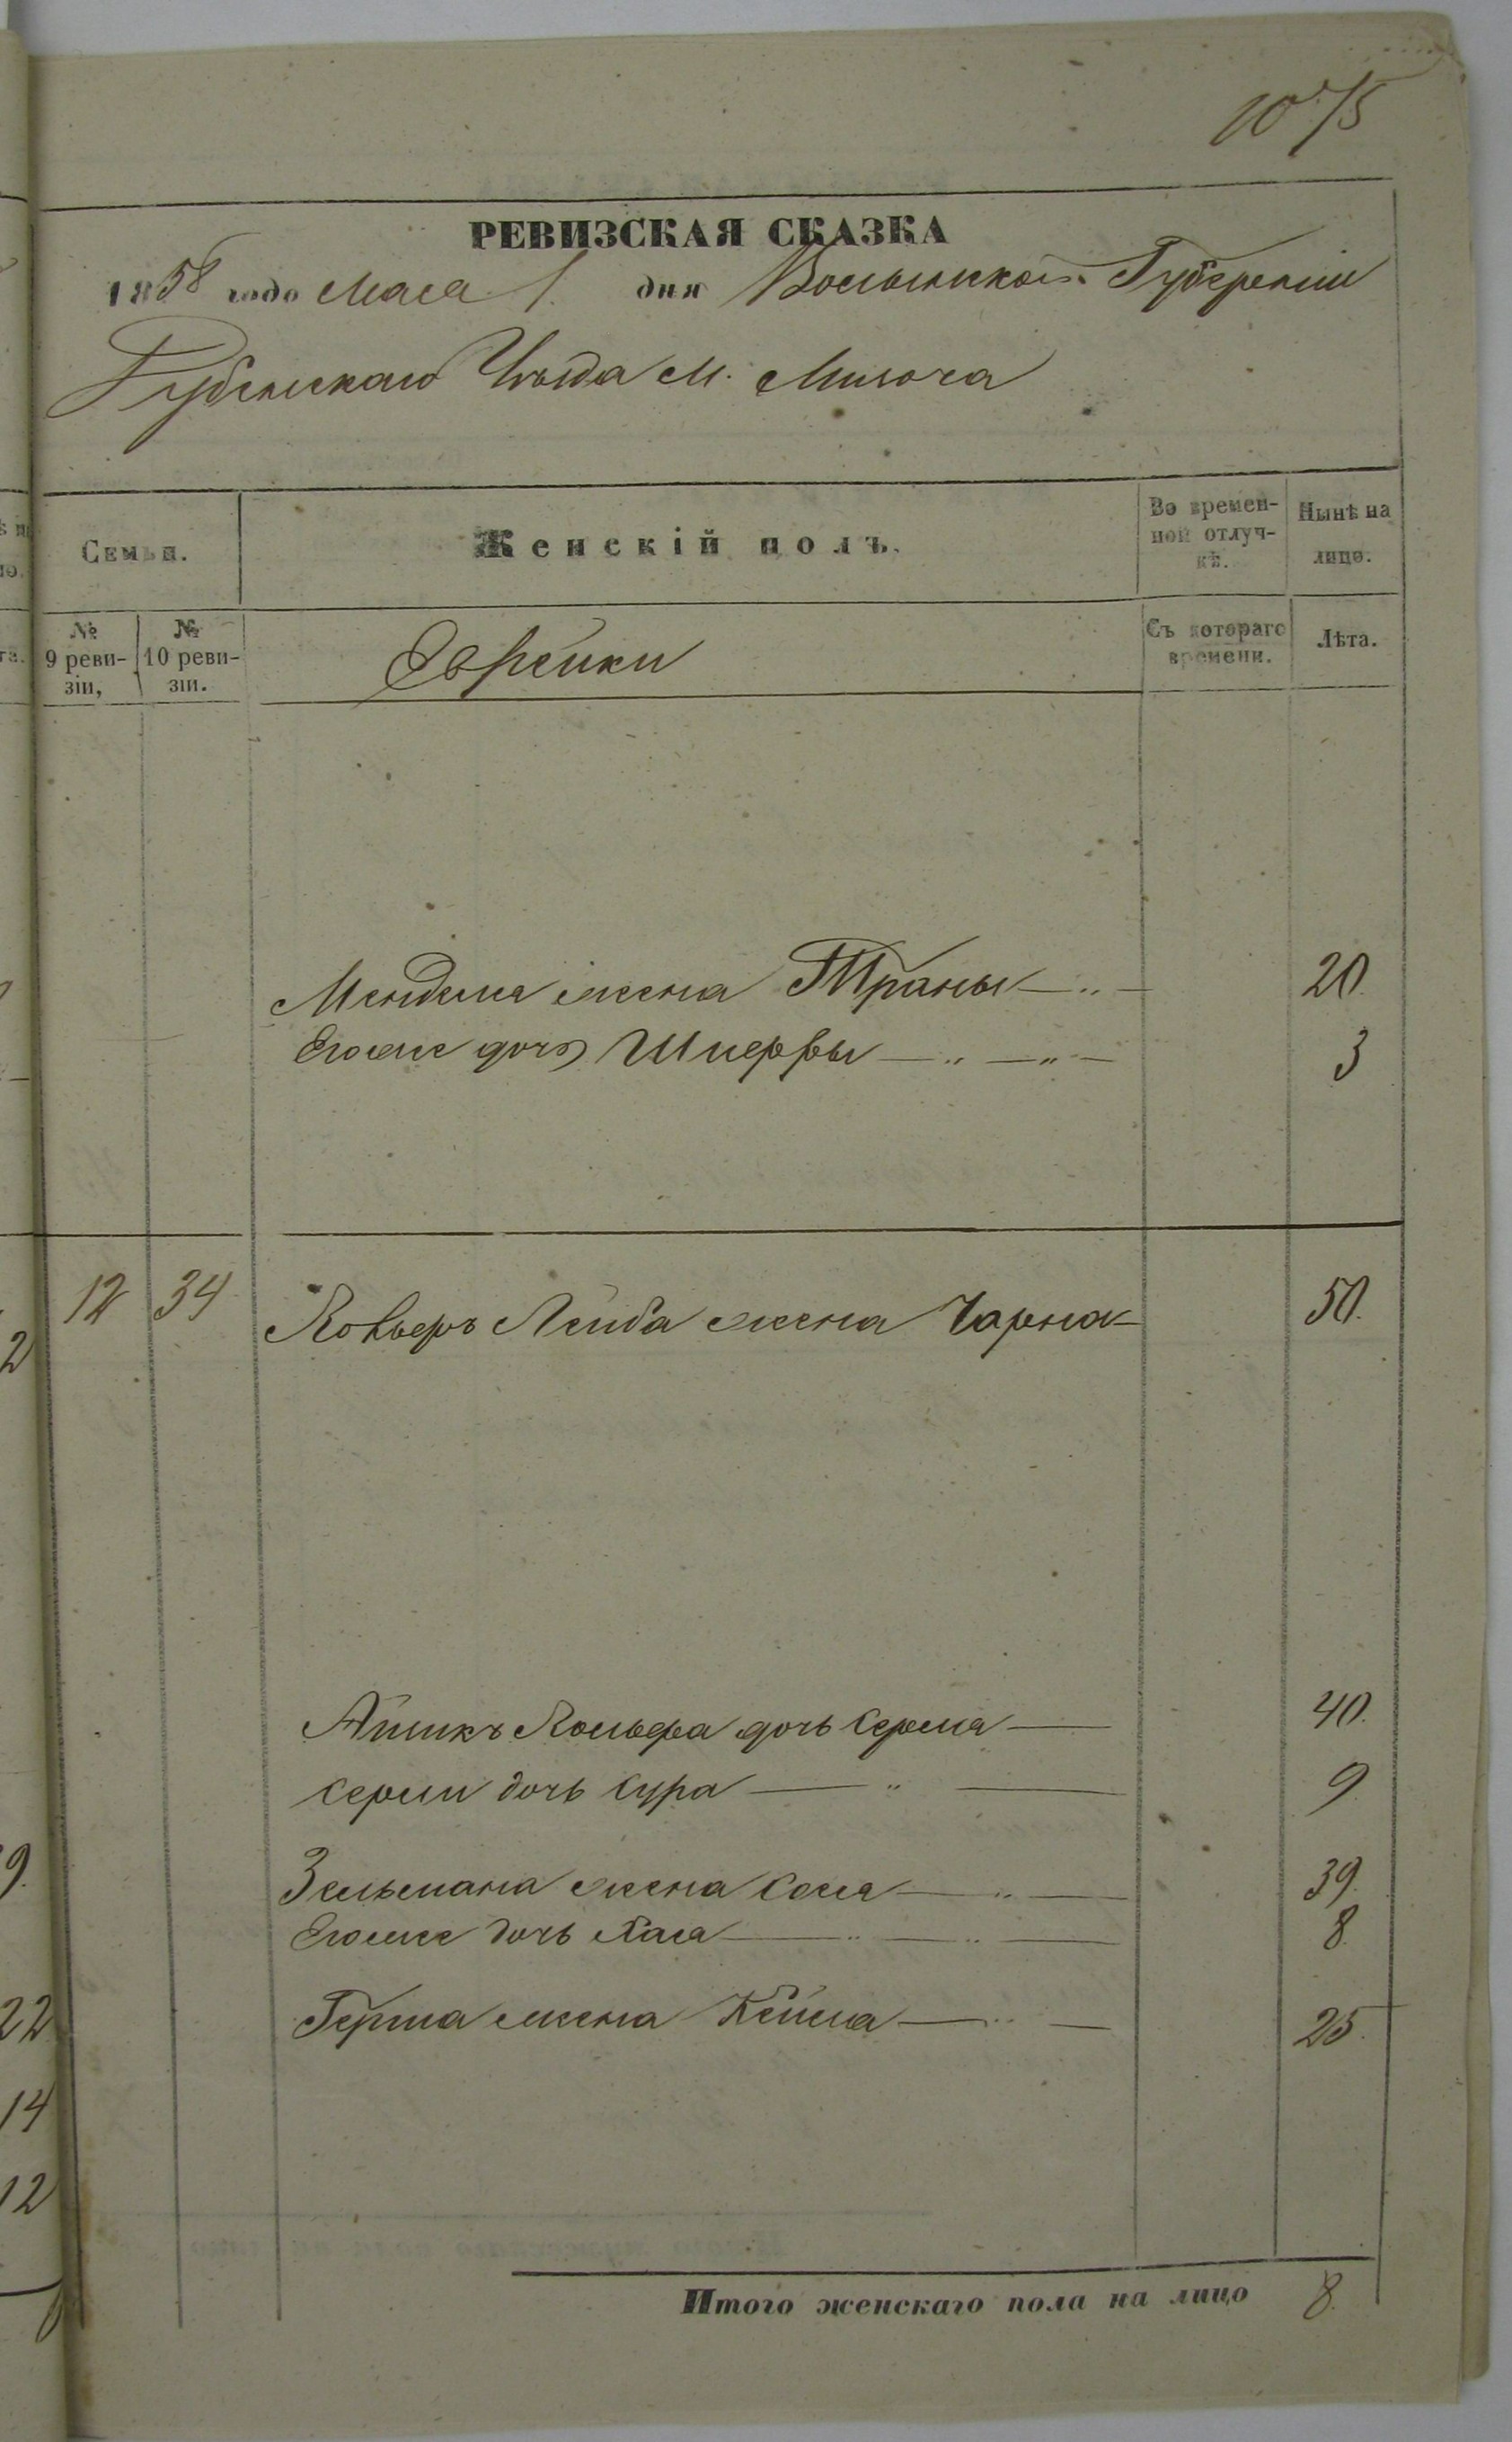 1075
РЕВИЗСКАЯ СКАЗКА
1858 года Мая 1 дня Волынской Губерніи
Дубенскаго Уѣзда М. Млинова
Семьи.
Женскій полъ.
Во времен-
ной отлуч-
кѣ.
Нынѣ на
лицо.
№
9 реви-
зіи,
№
10 реви-
зіи.
Еврейки
Съ котораго
времени.
Лѣта.
Менделя жена Франы 20
Егоже дочь 3
12 34 Лейба жена Чарна 50.
Вольфа дочь Серля 40.
Серли дочь Сура 9
Зельмана жена Сося 39.
Егоже дочь Хая 8.
Герша жена Бейла 25.
Итого женскаго пола на лицо 8.
2
9.
22
14
12